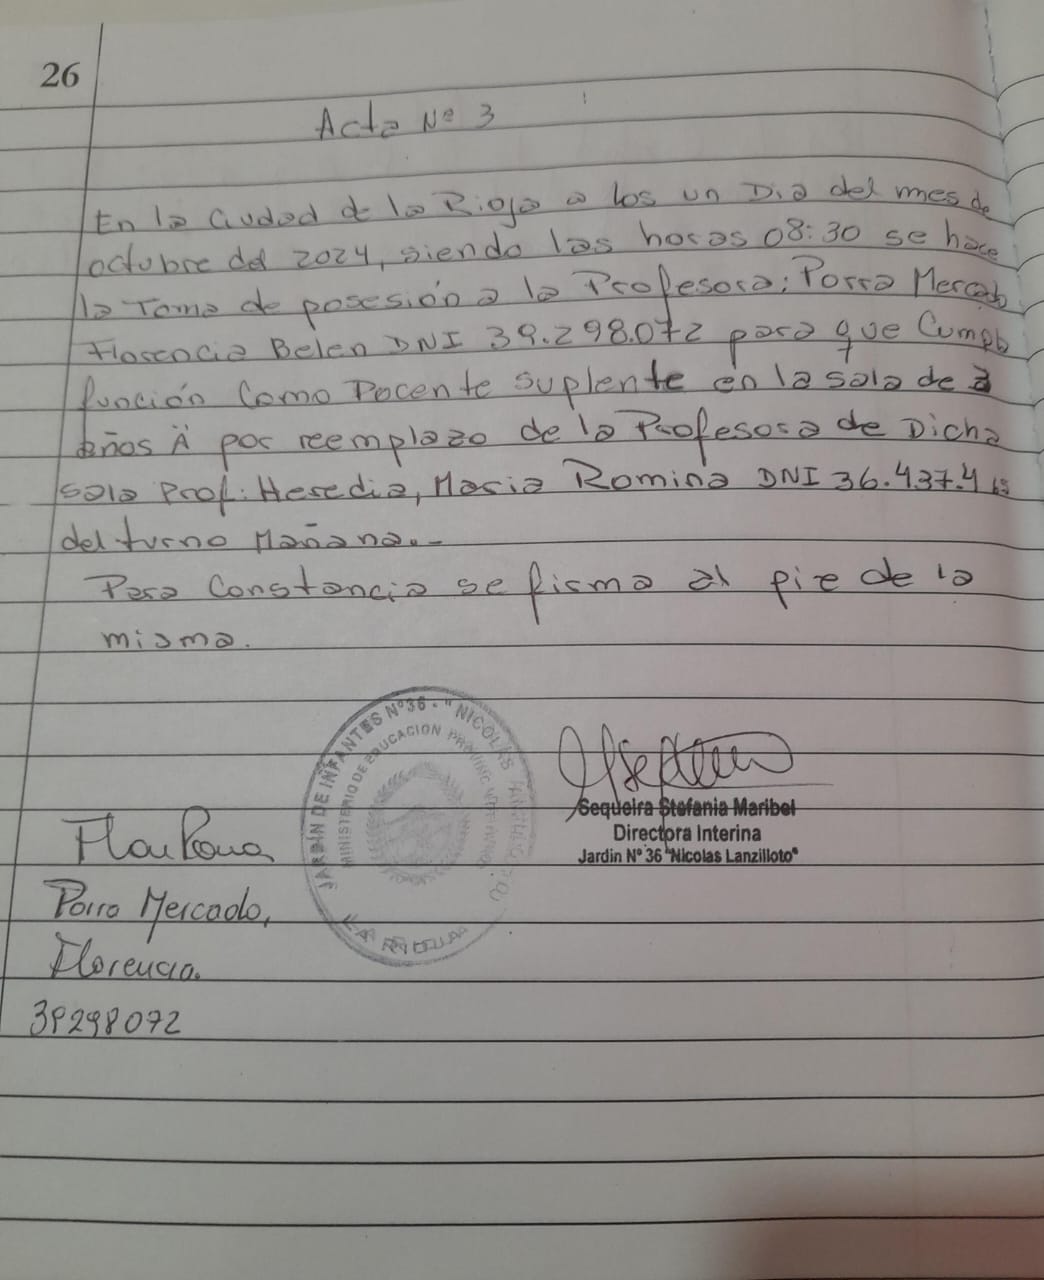 26
Acta Nº 3
En la Ciudad de la Rioja a los un Dia del mes de
octubre del 2024, siendo las horas 08:30 se hace
la Toma de posesión a la Profesora: Porra Mercado
Florencia Belen DNI 39.298.072 para que Cumpla
función Como Docente suplente en la sala de 3
años "A" por reemplazo de la Profesora de Dicha
sala Prof: Heredia, Maria Romina DNI 36.437.4
del turno Mañana.-
Para Constancia se firma al pie de la
misma.
JARDÍN DE INFANTES Nº36 - "NICOLAS
MINISTERIO DE EDUCACION
Sequeira Stefania Maribel
Directora Interina
Jardin Nº 36 "Nicolas Lanzilloto"
Porra Mercado,
Florencia.
39298072